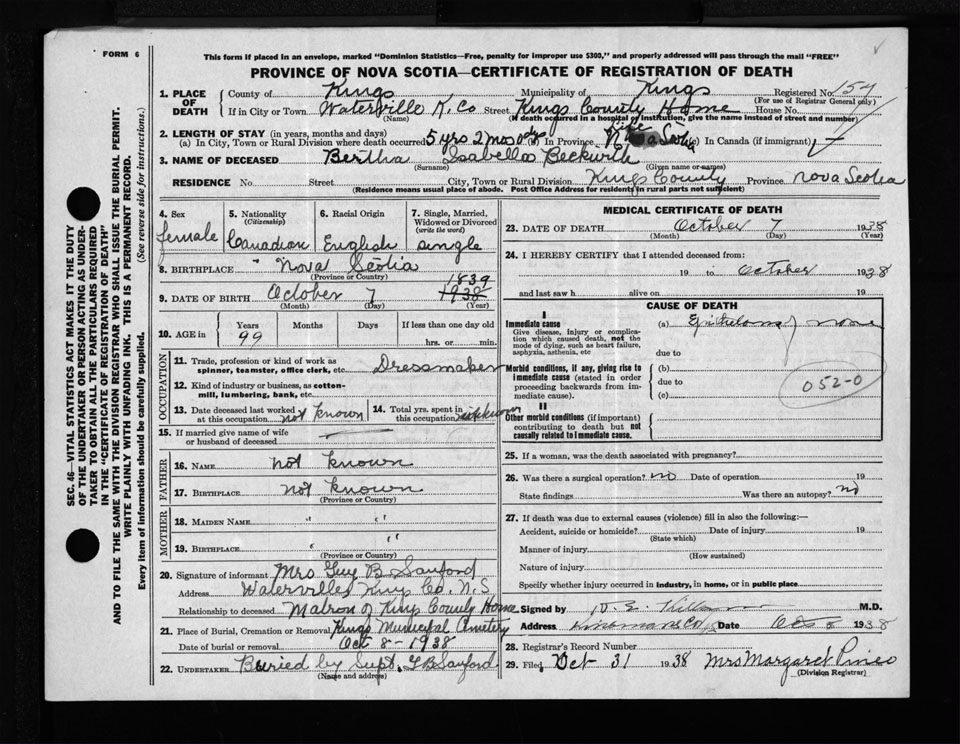 FORM 6
This form if placed in an envelope, marked "Dominion Statistics—Free, penalty for improper use $300," and properly addressed will pass through the mail "FREE"
PROVINCE OF NOVA SCOTIA—CERTIFICATE OF REGISTRATION OF DEATH
1. PLACE OF DEATH
County of Kings Municipality of Kings Registered No. 154
(For use of Registrar General only)
If in City or Town Waterville K. Co Street Kings County Home House No.
(Name) (If death occurred in a hospital or institution, give the name instead of street and number)
2. LENGTH OF STAY (in years, months and days)
(a) In City, Town or Rural Division where death occurred 5 yrs 2 mos 0 dys (b) In Province life Nova Scotia (c) In Canada (if immigrant)
3. NAME OF DECEASED Bertha Isabella Beckwith
(Surname) (Given name or names)
RESIDENCE No. Street City, Town or Rural Division Kings County Province Nova Scotia
(Residence means usual place of abode. Post Office Address for residents in rural parts not sufficient)
SEC. 46—VITAL STATISTICS ACT MAKES IT THE DUTY
OF THE UNDERTAKER OR PERSON ACTING AS UNDER-
TAKER TO OBTAIN ALL THE PARTICULARS REQUIRED
IN THE "CERTIFICATE OF REGISTRATION OF DEATH"
AND TO FILE THE SAME WITH THE DIVISION REGISTRAR WHO SHALL ISSUE THE BURIAL PERMIT.
WRITE PLAINLY WITH UNFADING INK. THIS IS A PERMANENT RECORD.
Every item of information should be carefully supplied. (See reverse side for instructions.)
4. Sex female
5. Nationality (Citizenship) Canadian
6. Racial Origin English
7. Single, Married, Widowed or Divorced (write the word) single
8. BIRTHPLACE Nova Scotia
(Province or Country)
1839
9. DATE OF BIRTH October 7 1938
(Month) (Day) (Year)
10. AGE in Years 99 Months Days If less than one day
hrs. or min.
OCCUPATION
11. Trade, profession or kind of work as spinner, teamster, office clerk, etc. Dressmaker
12. Kind of industry or business, as cotton-mill, lumbering, bank, etc.
13. Date deceased last worked at this occupation not known
14. Total yrs. spent in this occupation unknown
15. If married give name of wife or husband of deceased
FATHER
16. NAME not known
17. BIRTHPLACE not known
(Province or Country)
MOTHER
18. MAIDEN NAME " "
19. BIRTHPLACE " "
(Province or Country)
20. Signature of informant Mrs Guy B Sanford
Address Waterville Kings Co. N.S
Relationship to deceased Matron of Kings County Home
21. Place of Burial, Cremation or Removal Kings Municipal Cemetery
Date of burial or removal Oct 8 - 1938
22. UNDERTAKER Buried by Supt. Sanford
(Name and address)
MEDICAL CERTIFICATE OF DEATH
23. DATE OF DEATH October 7 1938
(Month) (Day) (Year)
24. I HEREBY CERTIFY that I attended deceased from:
19 to October 1938
and last saw h alive on 19
CAUSE OF DEATH
I
Immediate cause (a) Epithelioma of nose
Give disease, injury or complication which caused death, not the mode of dying, such as heart failure, asphyxia, asthenia, etc
due to
Morbid conditions, if any, giving rise to immediate cause (stated in order proceeding backwards from immediate cause).
(b)
due to
(c)
052-0
II
Other morbid conditions (if important) contributing to death but not causally related to immediate cause.
25. If a woman, was the death associated with pregnancy?
26. Was there a surgical operation? no Date of operation 19
State findings Was there an autopsy? no
27. If death was due to external causes (violence) fill in also the following:—
Accident, suicide or homicide? Date of injury 19
(State which)
Manner of injury
(How sustained)
Nature of injury
Specify whether injury occurred in industry, in home, or in public place
Signed by M.D.
Address Date Oct 8 1938
28. Registrar's Record Number
29. Filed Oct 31 1938 Mrs Margaret Pineo
(Division Registrar)